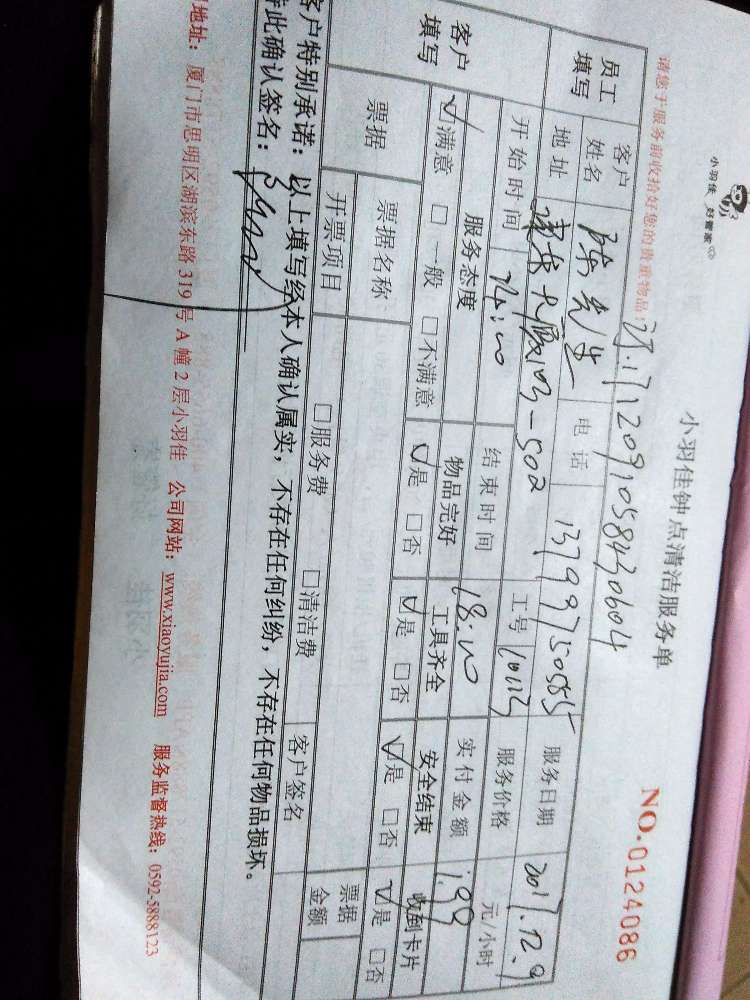 小羽佳 好管家
小羽佳钟点清洁服务单
NO.0124086
请您于服务前收拾好您的贵重物品!
1712091058430604
员工填写 客户姓名 陈先生 电话 13799750585 服务日期 2017.12.9
地址 工号 10113 服务价格 元/小时
开始时间 14:00 结束时间 18:00 实付金额 199
客户填写 服务态度 物品完好 工具齐全 安全结束 收到卡片
☑满意 □一般 □不满意 ☑是 □否 ☑是 □否 ☑是 □否 ☑是 □否
票据 票据名称 □服务费 □清洁费 客户签名 票据金额
开票项目
客户特别承诺:以上填写经本人确认属实,不存在任何纠纷,不存在任何物品损坏。
特此确认签名:
地址:厦门市思明区湖滨东路319号A幢2层小羽佳 公司网站:www.xiaoyujia.com 服务监督热线:0592-5888123